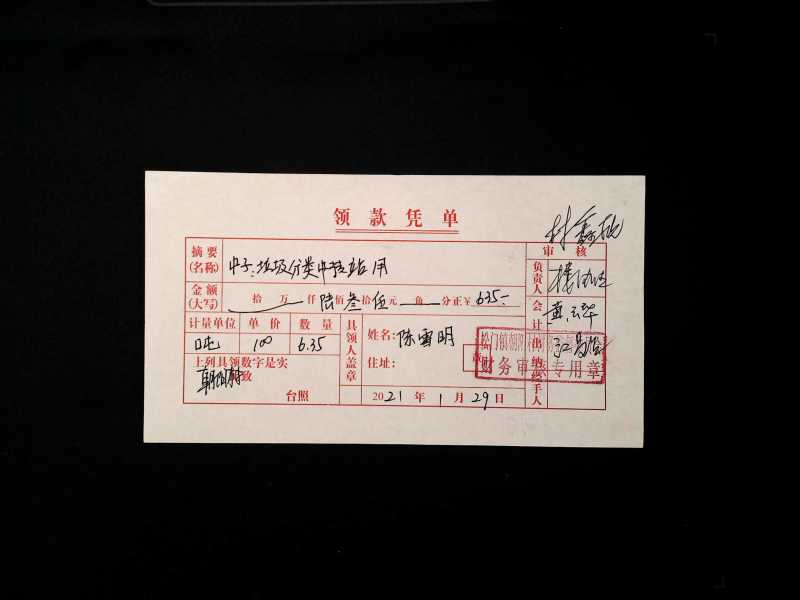 领款凭单
摘要(名称) 中子:垃圾分类中转站用
审核
金额(大写) 拾万仟陆佰叁拾伍元角分正¥635.-
负责人
计量单位 单价 数量
会计 黄云华
吨 100 6.35
具领人盖章
姓名:陈雪明
住址:
出纳
上列具领数字是实
朝阳村 致
台照
2021年1月29日
经手人
章
松门镇朝阳村
财务审核专用章